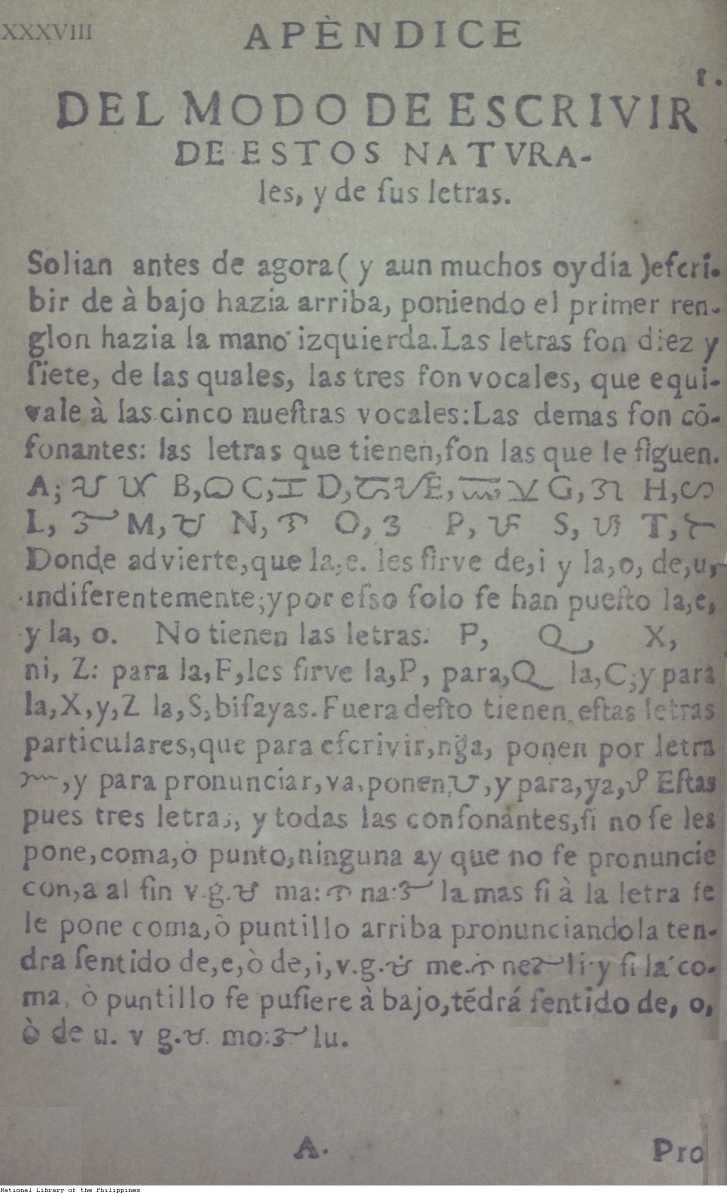 XXXVIII APÈNDICE
1.
DEL MODO DE ESCRIVIR
DE ESTOS NATVRA-
les, y de ſus letras.
Solian antes de agora ( y aun muchos oy dia )eſcri-
bir de à bajo hazia arriba, poniendo el primer ren-
glon hazia la mano izquierda. Las letras ſon diez y
ſiete, de las quales, las tres ſon vocales, que equi-
vale à las cinco nueſtras vocales: Las demas ſon cō-
ſonantes: las letras que tienen, ſon las que ſe ſiguen.
A; ᜀ B, ᜊ C, ᜃ D, ᜇ E, ᜁ G, ᜄ H, ᜑ
L, ᜎ M, ᜋ N, ᜈ O, ᜂ P, ᜉ S, ᜐ T, ᜆ
Donde advierte, que la, e. les ſirve de, i y la, o, de, u,
indiferentemente; y por eſso ſolo ſe han pueſto la, e,
y la, o. No tienen las letras. P, Q, X,
ni, Z: para la, F, les ſirve la, P, para, Q la, C; y para
la, X, y, Z la, S, biſayas. Fuera deſto tienen eſtas letras
particulares, que para eſcrivir, nğa, ponen por letra
ᜅ, y para pronunciar, va, ponen, ᜏ, y para, ya, ᜌ Eſtas
pues tres letras, y todas las conſonantes, ſi no ſe les
pone, coma, ò punto, ninguna ay que no ſe pronuncie
con, a al fin v.g. ᜋ ma: ᜈ na: ᜎ la mas ſi à la letra ſe
le pone coma, ò puntillo arriba pronunciandola ten-
dra ſentido de, e, ò de, i, v.g. ᜋᜒ me. ᜈᜒ ne ᜎᜒ li. y ſi la co-
ma, ò puntillo ſe puſiere à bajo, tédrá ſentido de, o,
ò de u. v g. ᜋᜓ mo: ᜎᜓ lu.
A. Pro
National Library of the Philippines